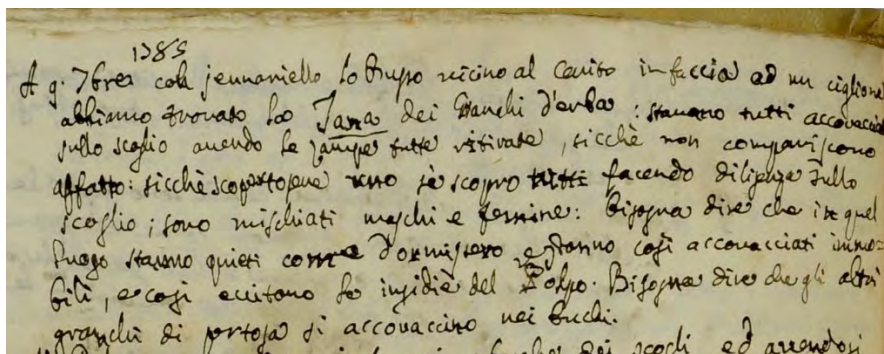 1785
A 9. 7bre coll jennariello lo Trupo vicino al Cavito in faccia ad un ciglione
abbiamo trovato la Tana dei Granchi d'erba: stavano tutti accovacciati
sullo scoglio avendo le zampe tutte ritirate, sicchè non compariscono
affatto: sicchè scopertosene uno sè scopro tutti facendo diligenza sullo
scoglio; sono mischiati maschi e femine: bisogna dire che in quel
luogo stanno quieti come dormissero e stanno così accovacciati immo=
bili, e così evitono le insidie del Polpo. Bisogna dire che gli altri
granchi di portosa si accovaccino nei buchi.
dei scogli ed avendosi